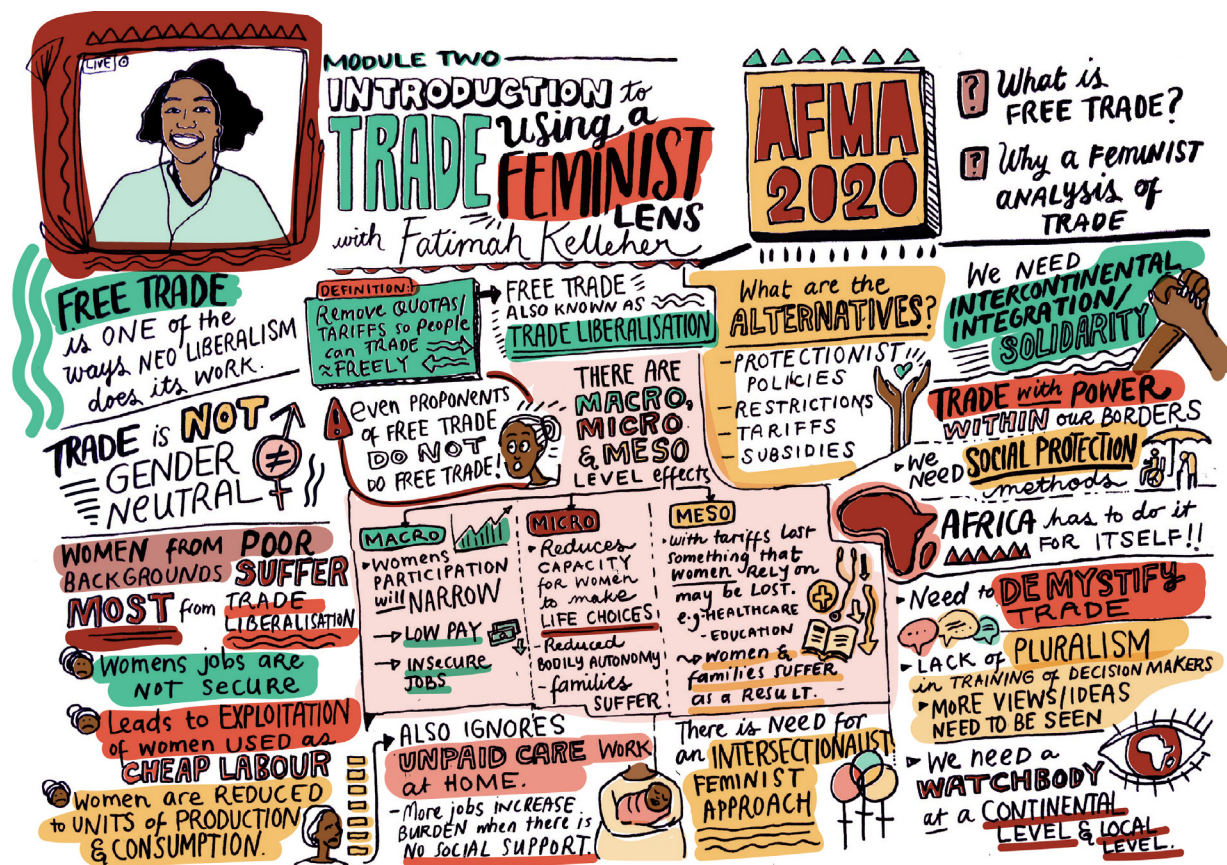 LIVE
MODULE TWO
INTRODUCTION to
TRADE using a
FEMINIST
LENS
with Fatimah Kelleher
AFMA
2020
? What is
FREE TRADE?
? Why a FEMINIST
ANALYSIS of
TRADE
FREE TRADE
is ONE of the
ways NEO LIBERALISM
does its WORK.
TRADE is NOT
GENDER
NEUTRAL
WOMEN from POOR
BACKGROUNDS SUFFER
MOST from TRADE
LIBERALISATION
Womens jobs are
NOT SECURE
Leads to EXPLOITATION
of women USED as
CHEAP LABOUR
Women are REDUCED
to UNITS of PRODUCTION
& CONSUMPTION.
DEFINITION:
REMOVE QUOTAS/
TARIFFS so people
can TRADE
≈FREELY
FREE TRADE
ALSO KNOWN AS
TRADE LIBERALISATION
! even PROPONENTS
of FREE TRADE
DO NOT
DO FREE TRADE!
THERE ARE
MACRO,
MICRO
& MESO
LEVEL effects
MACRO
WOMENS
PARTICIPATION
will NARROW
LOW PAY
INSECURE
JOBS
MICRO
Reduces
CAPACITY
for WOMEN
to make
LIFE CHOICES
-Reduced
BODILY AUTONOMY
-families
SUFFER
MESO
with tariffs lost
something that
women RELY on
may be LOST.
e.g-HEALTHCARE
-EDUCATION
women &
families SUFFER
as a RESULT.
ALSO IGNORES
UNPAID CARE WORK
at HOME.
-More jobs INCREASE
BURDEN when there is
NO SOCIAL SUPPORT.
There is NEED for
an INTERSECTIONALIST
FEMINIST
APPROACH
What are the
ALTERNATIVES?
-PROTECTIONIST
POLICIES
-RESTRICTIONS
-TARIFFS
-SUBSIDIES
We NEED
INTERCONTINENTAL
INTEGRATION/
SOLIDARITY
TRADE with POWER
WITHIN our BORDERS
We
need SOCIAL PROTECTION
methods
AFRICA has to do it
FOR ITSELF!!
Need to DEMYSTIFY
TRADE
LACK of PLURALISM
in TRAINING of DECISION MAKERS
MORE VIEWS/IDEAS
NEED TO BE SEEN
We need a
WATCHBODY
at a CONTINENTAL
LEVEL & LOCAL
LEVEL.